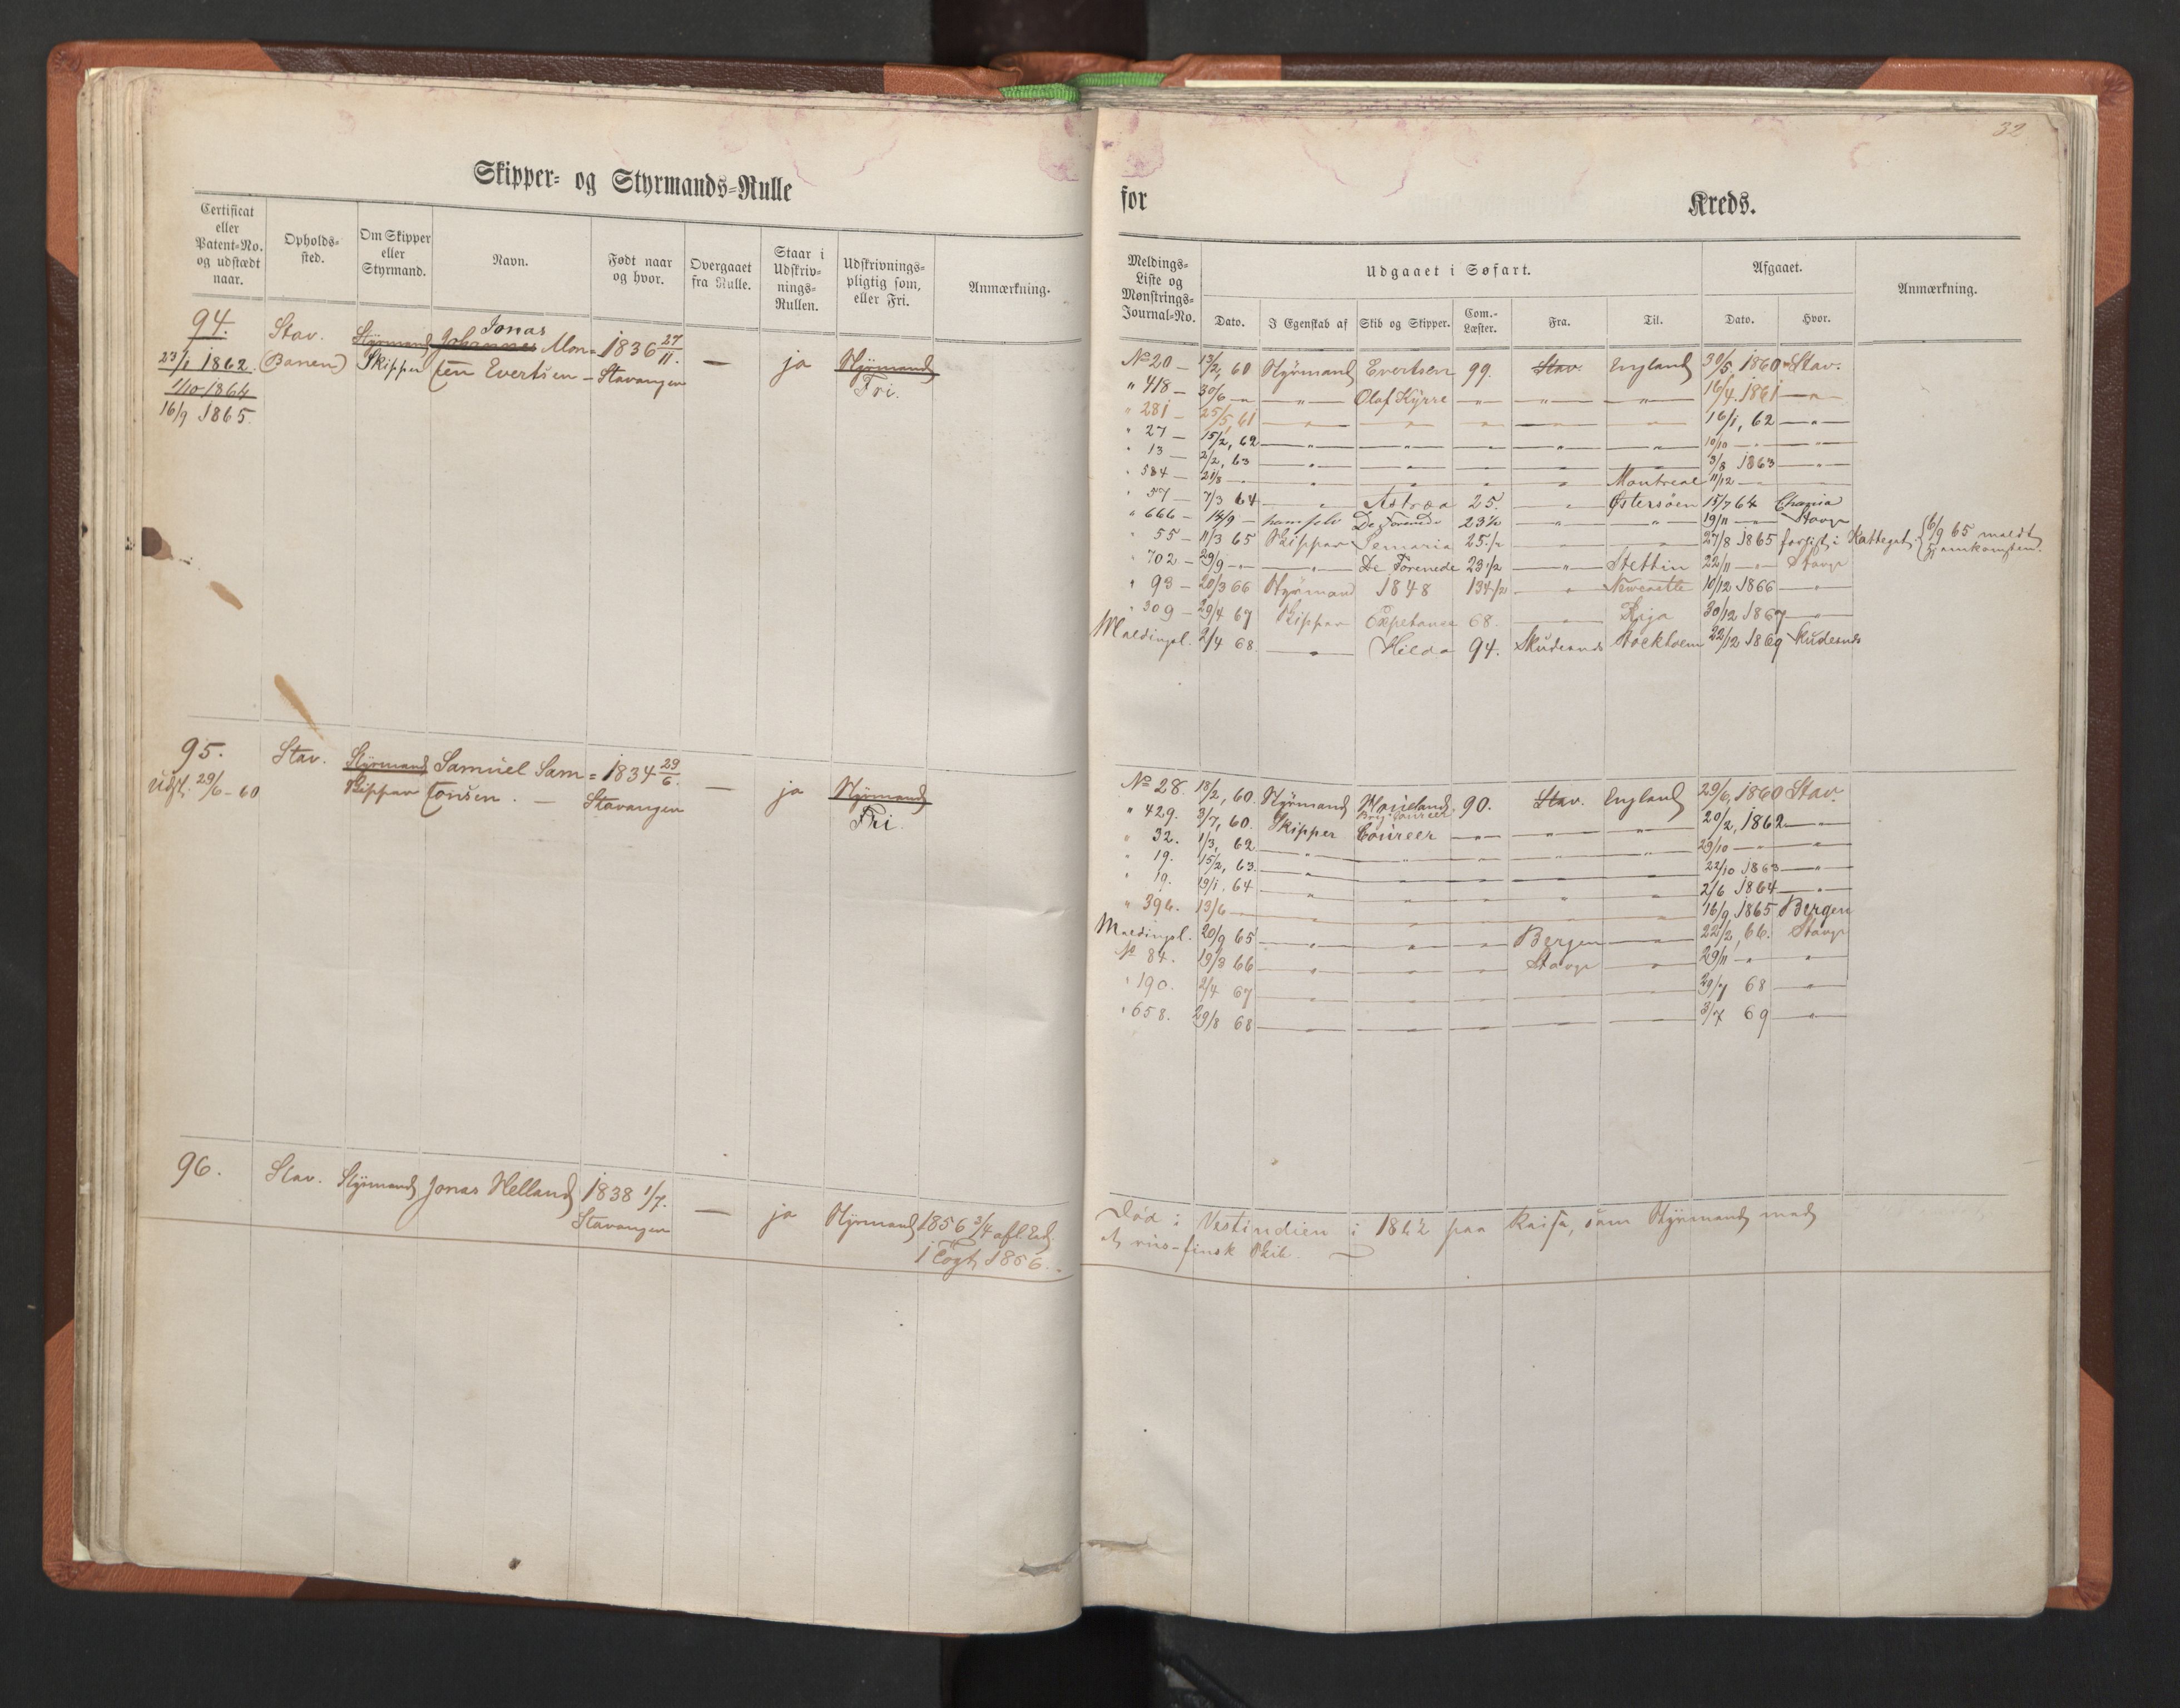 32
Skipper= og Styrmands=Rulle
for Kreds.
Certificat eller Patent=No. og udstædt naar.
Opholds=sted.
Om Skipper eller Styrmand.
Navn.
Født naar og hvor.
Overgaaet fra Rulle.
Staar i Udskriv=nings=Rullen.
Udskrivnings=pligtig som, eller Fri.
Anmærkning.
Meldings=Liste og Mønstrings=Journal=No.
Udgaaet i Søfart.
Dato.
I Egenskab af
Skib og Skipper.
Com.=Læster.
Fra.
Til.
Afgaaet.
Dato.
Hvor.
Anmærkning.
94. Stav. Styrmand Johannes Jonas Mon= 1836 27/11. — ja Styrmand
23/1 1862 (Banen) Skipper sen Evertsen — Stavanger Fri.
1/10 1864
16/9 1865
No 20 — 13/2, 60 Styrmand Evertsen 99. Stav. England 30/5 1860 Stav.
" 418 — 30/6 — " — " — Olaf Kyrre — " — " — " — 16/4 1861 — " —
" 281 — 25/5, 61 — " — " — " — " — " — 16/1, 62 — " —
" 27 — 15/2, 62 — " — " — " — " — " — 10/10 — " — " —
" 13 — 2/2, 63 — " — " — " — " — " — 3/8 1863 — " —
" 584 — 21/8 — " — " — " — " — " Montreal 11/12 — " —
" 57 — 7/3 64 — " — Astræa 25. — " Østersøen 15/7 64 Chania
" 666 — 14/9 — som selv De Forenede 23 1/2 — " — " — 19/11 — " — Stavgr
" 55 — 11/3 65 Skipper Semaria 25 1/2 — " — " — 27/8 1865 forlist i Kattegat. 6/9 65 meldt Hjemkomsten.
" 702 — 29/9 — " — " — De Forenede 23 1/2 — " — Stettin 22/11 — " — Stavgr
" 93 — 20/3 66 Styrmand 1848 134 1/2 — " Newcastle 10/12 1866 — " —
" 309 — 29/4 67 Skipper Expetance 68. — " — Riga 30/12 1867 — " —
Meldingsl. 2/4 68. — " — Hilda 94. Skudesnes Stockholm 22/12 1869 Skudesnes
95. Stav. Styrmand Samuel Sam= 1834 29/6. — ja Styrmand
Udst. 29/6 — 60 Skipper sonsen. — Stavanger Fri.
No 28. 18/2, 60. Styrmand 90. Stav. England 29/6, 1860 Stav.
" 429. 3/7, 60. Skipper Coureer — " — " — " — 20/2, 1862 — " —
" 32. 1/3, 62 — " — " — " — " — " — 29/10 — " — " —
" 19. 15/2, 63. — " — " — " — " — " — 22/10 1863 — " —
" 19. 19/1. 64 — " — " — " — " — " — 2/6 1864 — " —
" 396. 13/6 — " — " — " — " — " — " — 16/9, 1865 Bergen
Meldingsl. 20/9 65 — " — " — " — Bergen — " — 22/2, 66. Stavgr
No 84. 19/3 66 — " — " — " — Stavgr — " — 29/11 — " — " —
" 190. 2/4 67 — " — " — " — " — " — 29/7 68 — " —
" 658. 29/8 68 — " — " — " — " — " — 3/7 69 — " —
96. Stav. Styrmand Jonas Helland 1838 1/7. — ja Styrmand 1856 3/4 afl. Ed.
Stavanger i Togt 1856.
Død i Vestindien i 1862 paa Reise, som Styrmand med
et rus-finsk Skib. —